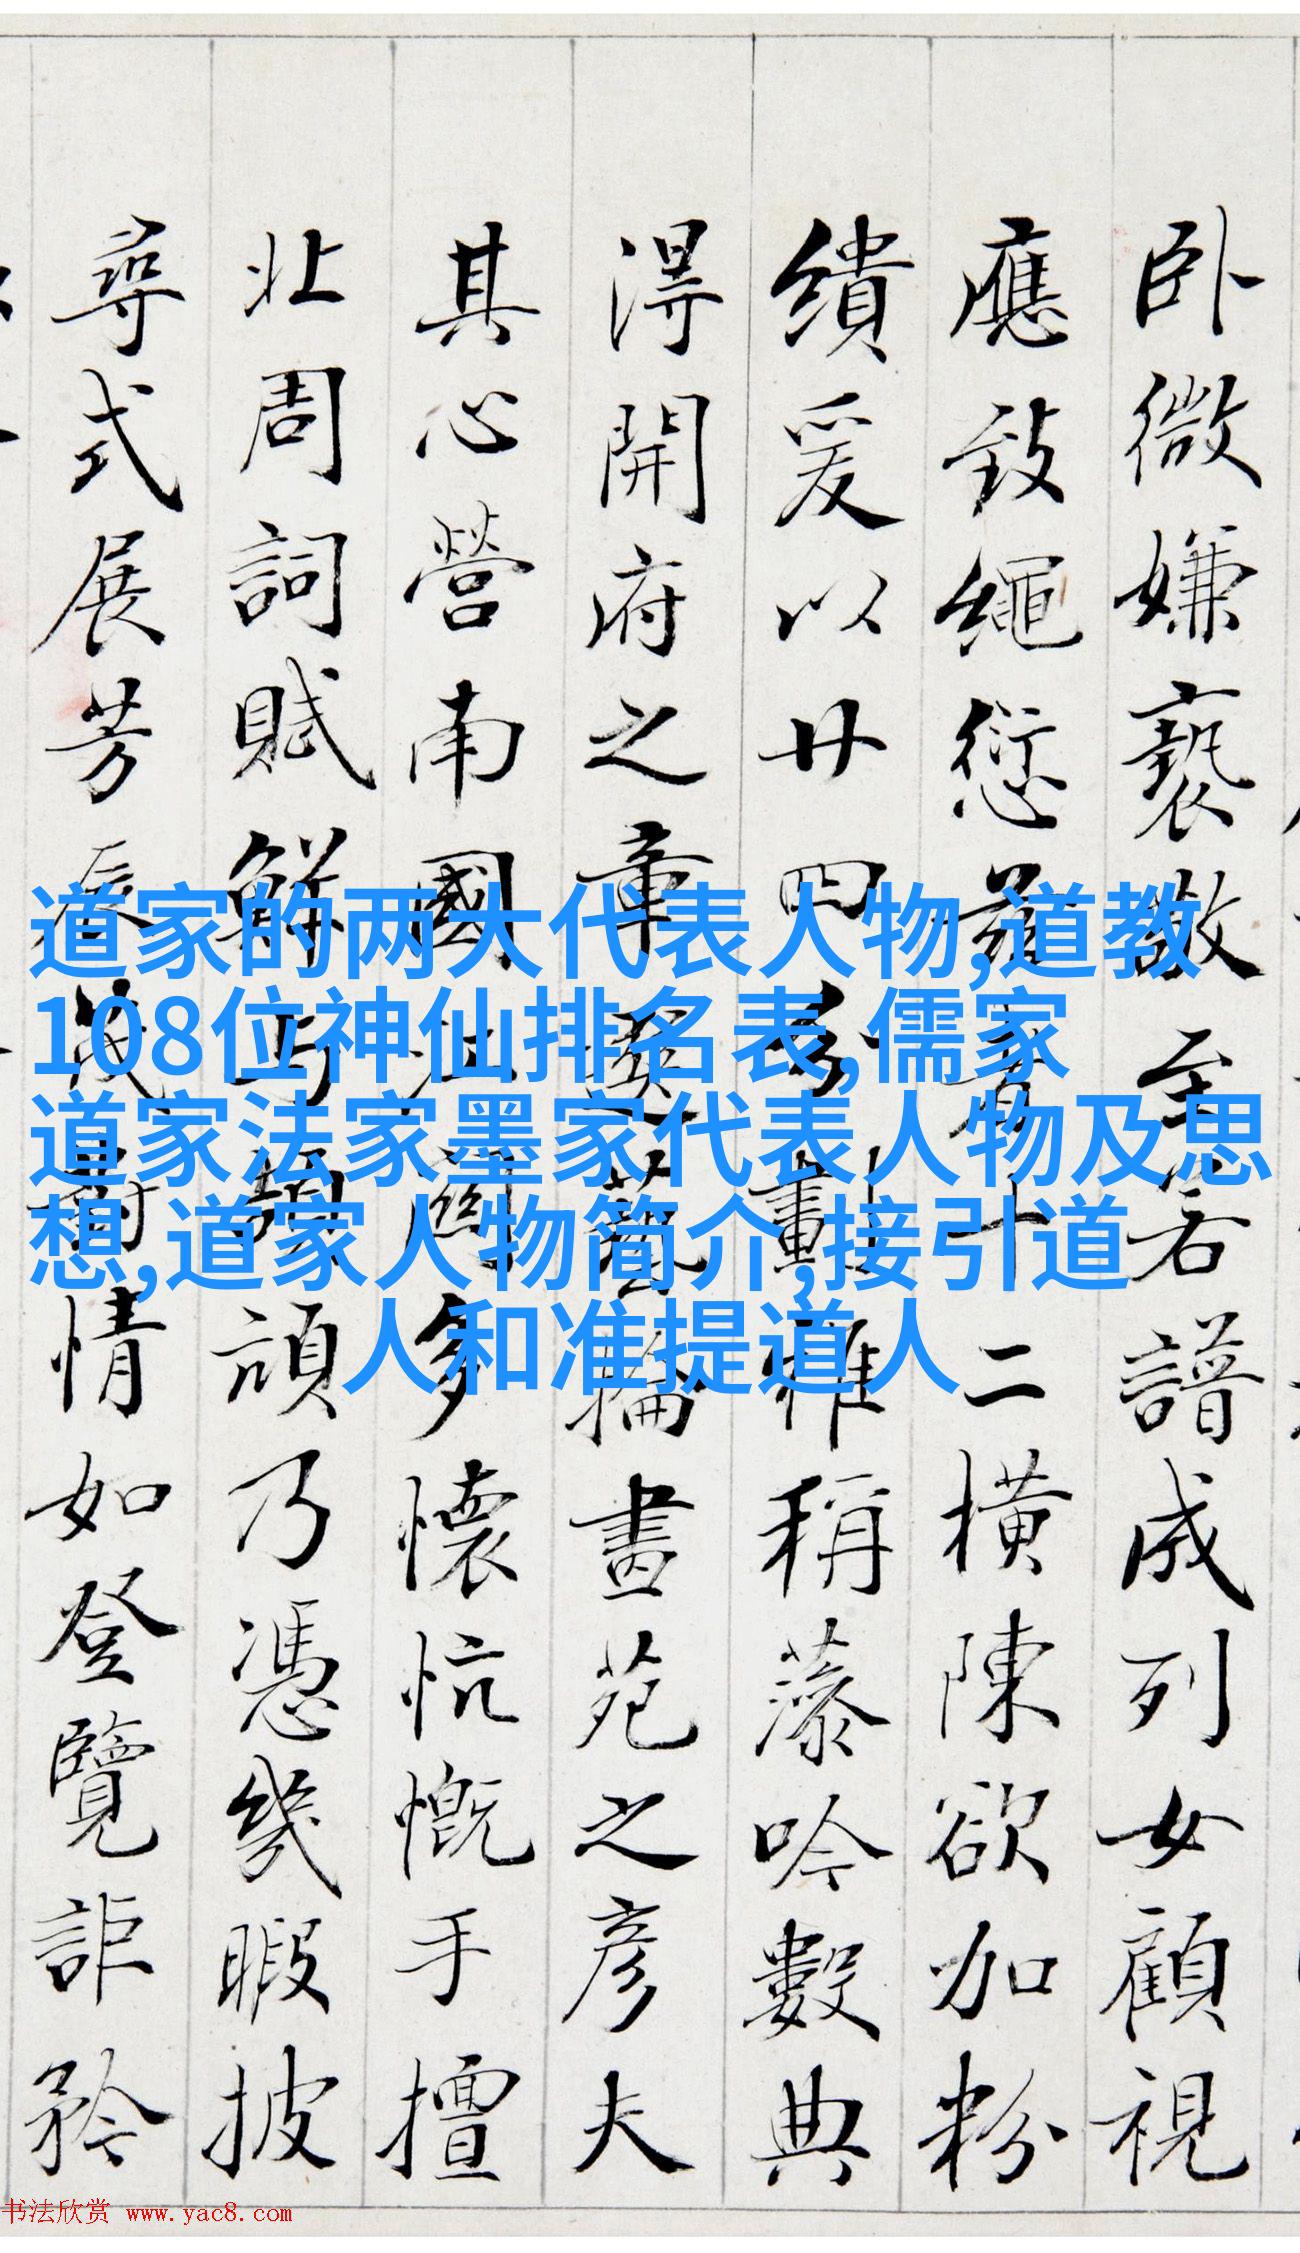 道家的两大代表人物,道教
108位神仙排名表,儒家
道家法家墨家代表人物及思
想,道家人物简介,接引道
人和准提道人
卧微嫌褻至若譜成列女顧視
應致繩愆十二橫陳欲加粉
繢爰以廿四畫雅稱吟數典
淂開府之章藝掄畫苑之彥夫
其心營南國江關多懷忼慨手擅
北周詞賦鮮頏乃憑幾暇披
尋式展芳辰茂對情如登覽詎矜
书法欣赏 www.yac8.com